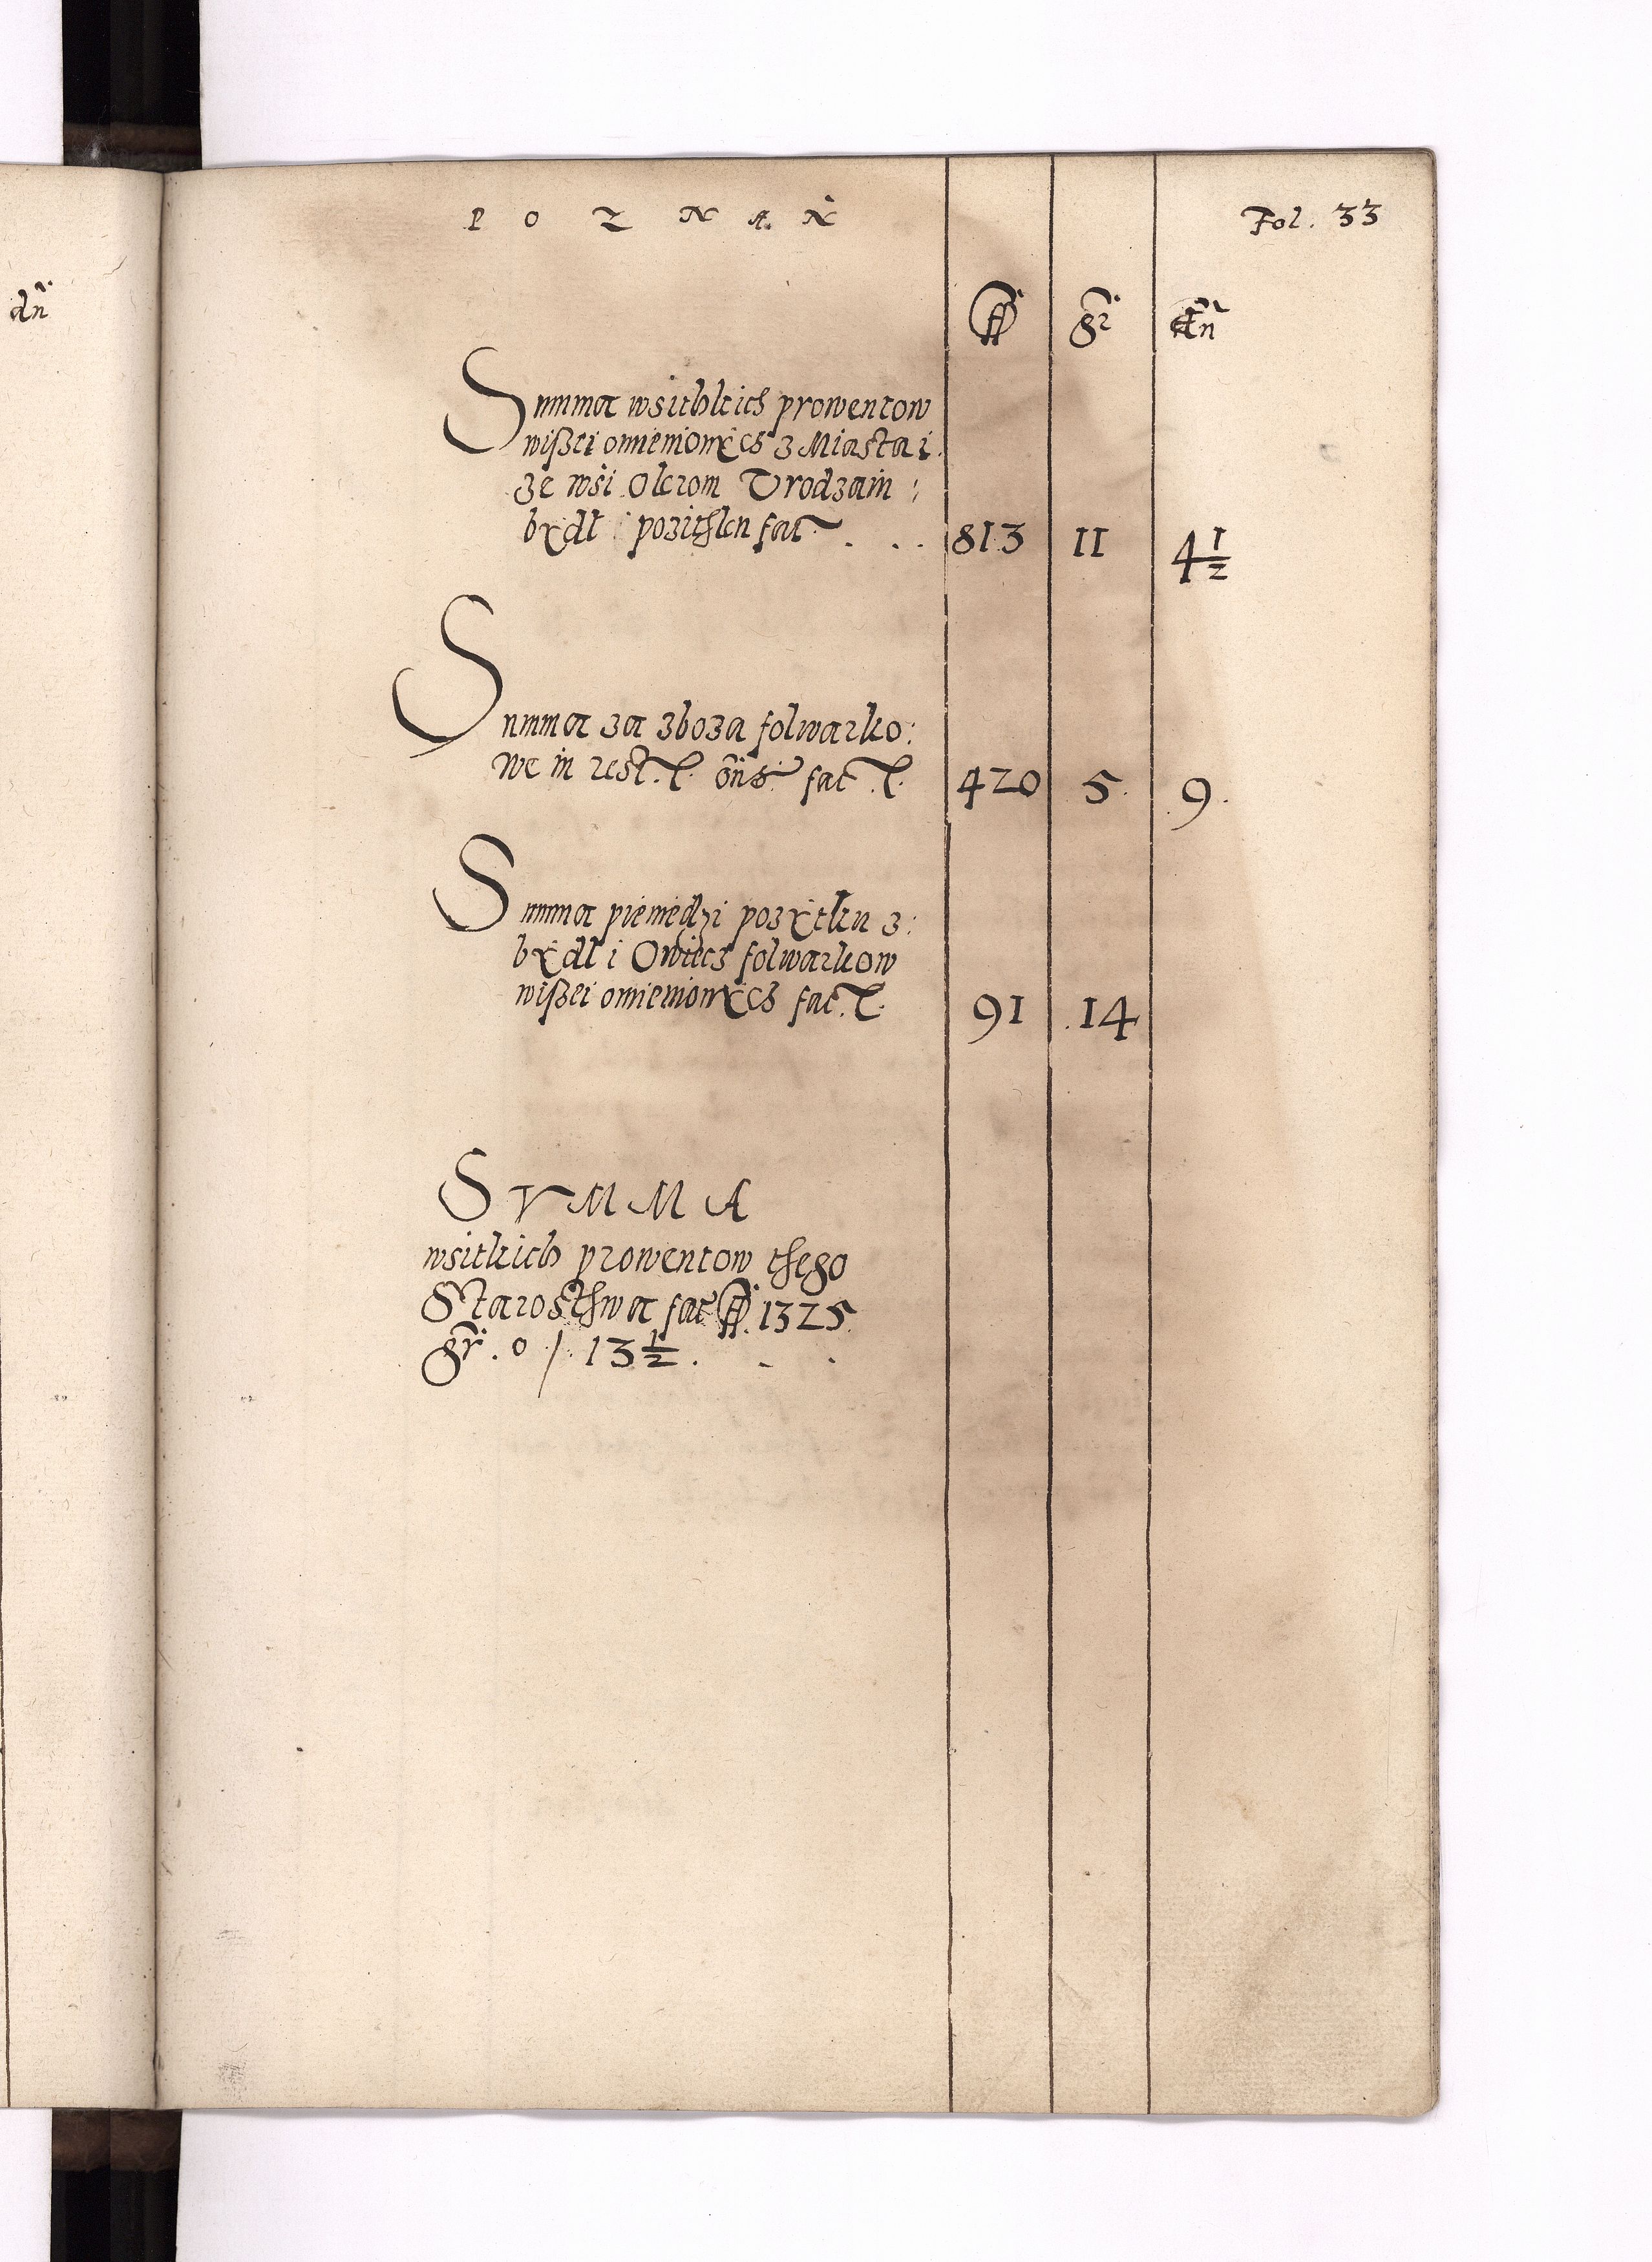 dn̄
P O Z N A Ń
Fol. 33
fl gr dn̄
Summa wsithkich prowentow
wißei omienionÿch z Miasta i
ze wsi Okrom Vrodzaiu:
bÿdł i pozithku fac̄ . . . 813 11 4½
Summa za zboza folwarko:
we in rest. l. on̄s. fac̄ l. 420 5. 9.
Summa pieniędzi pozÿtku z:
bÿdł i Owiecz folwarkow
wißei omienionÿch fac̄. l. 91 14
SVMMA
wsitkich prowentow thego
Starosthwa fac̄ fl. 1325.
gr. 0 /. 13½.